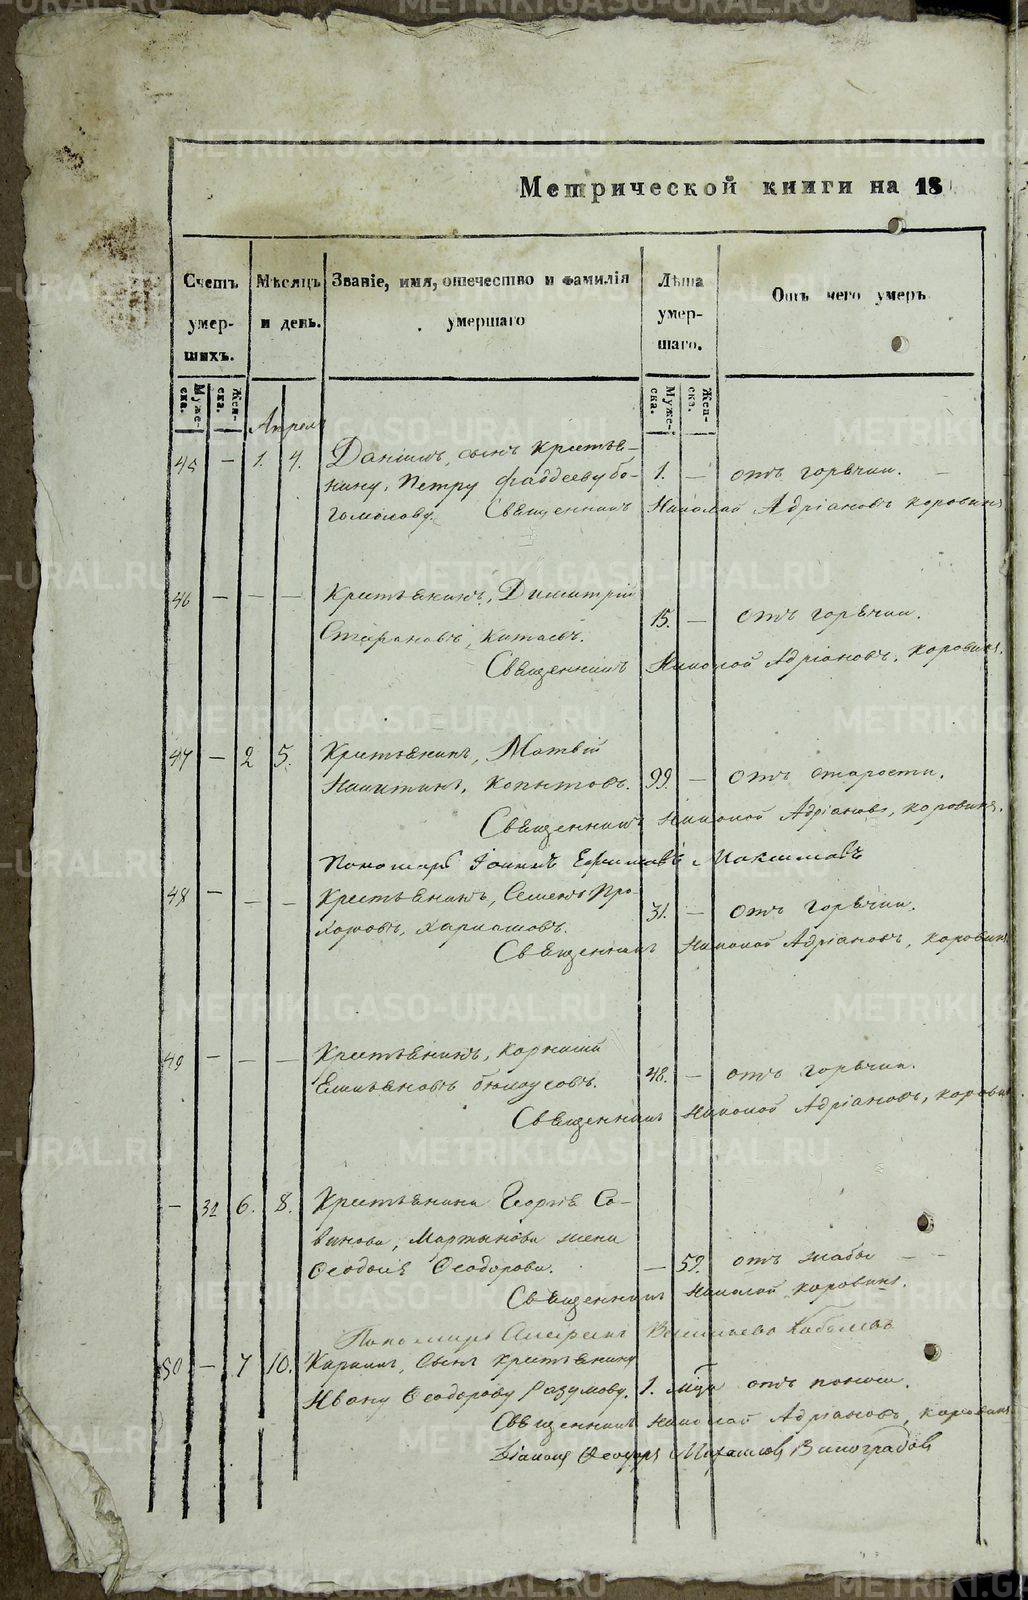 Метрической книги на 18
Счетъ умершихъ.
Мѣсяцъ и день.
Званіе, имя, отечество и фамилія умершаго
Лѣта умершаго.
Отъ чего умеръ
Мужеска.
Женска.
Мужеска.
Женска.
Апрель
45 — 1. 4. Даніилъ, сынъ крестья- 1. — отъ горячки.
нину, Петру Фаддееву бо-
гомолову. Священникъ Николай Адріановъ Коровинъ
46 — — — Крестьянинъ, Димитрій 15. — отъ горячки.
Китаевъ.
Священникъ Николай Адріановъ, Коровинъ.
47 — 2 5. Крестьянинъ, Матвій
Никитинъ, Копытовъ. 99. — отъ старости.
Священникъ Николай Адріановъ, Коровинъ.
Пономарь Іоаннъ Ефимовъ Максимовъ
48 — — — Крестьянинъ, Семенъ Про- 31. — отъ горячки.
хоровъ,
Священникъ Николай Адріановъ, Коровинъ
49 — — — Крестьянинъ, Корнилій
Емильяновъ Бѣлоусовъ. 48. — отъ горячки.
Священникъ Николай Адріановъ, Коровинъ
— 32 6. 8. Крестьянина Георгія Са-
винова, Мартынова жена
Феодосія Феодорова. — 59. отъ жабы — —
Священникъ Николай Коровинъ.
Пономарь Васильевъ
50 — 7 10. Кириллъ, сынъ крестьянину
Ивану Феодорову Разумову. 1. мѣся отъ поноса.
Священникъ Николай Адріановъ, Коровинъ
Діаконъ Феодоръ Михаиловъ Виноградовъ
METRIKI.GASO-URAL.RU